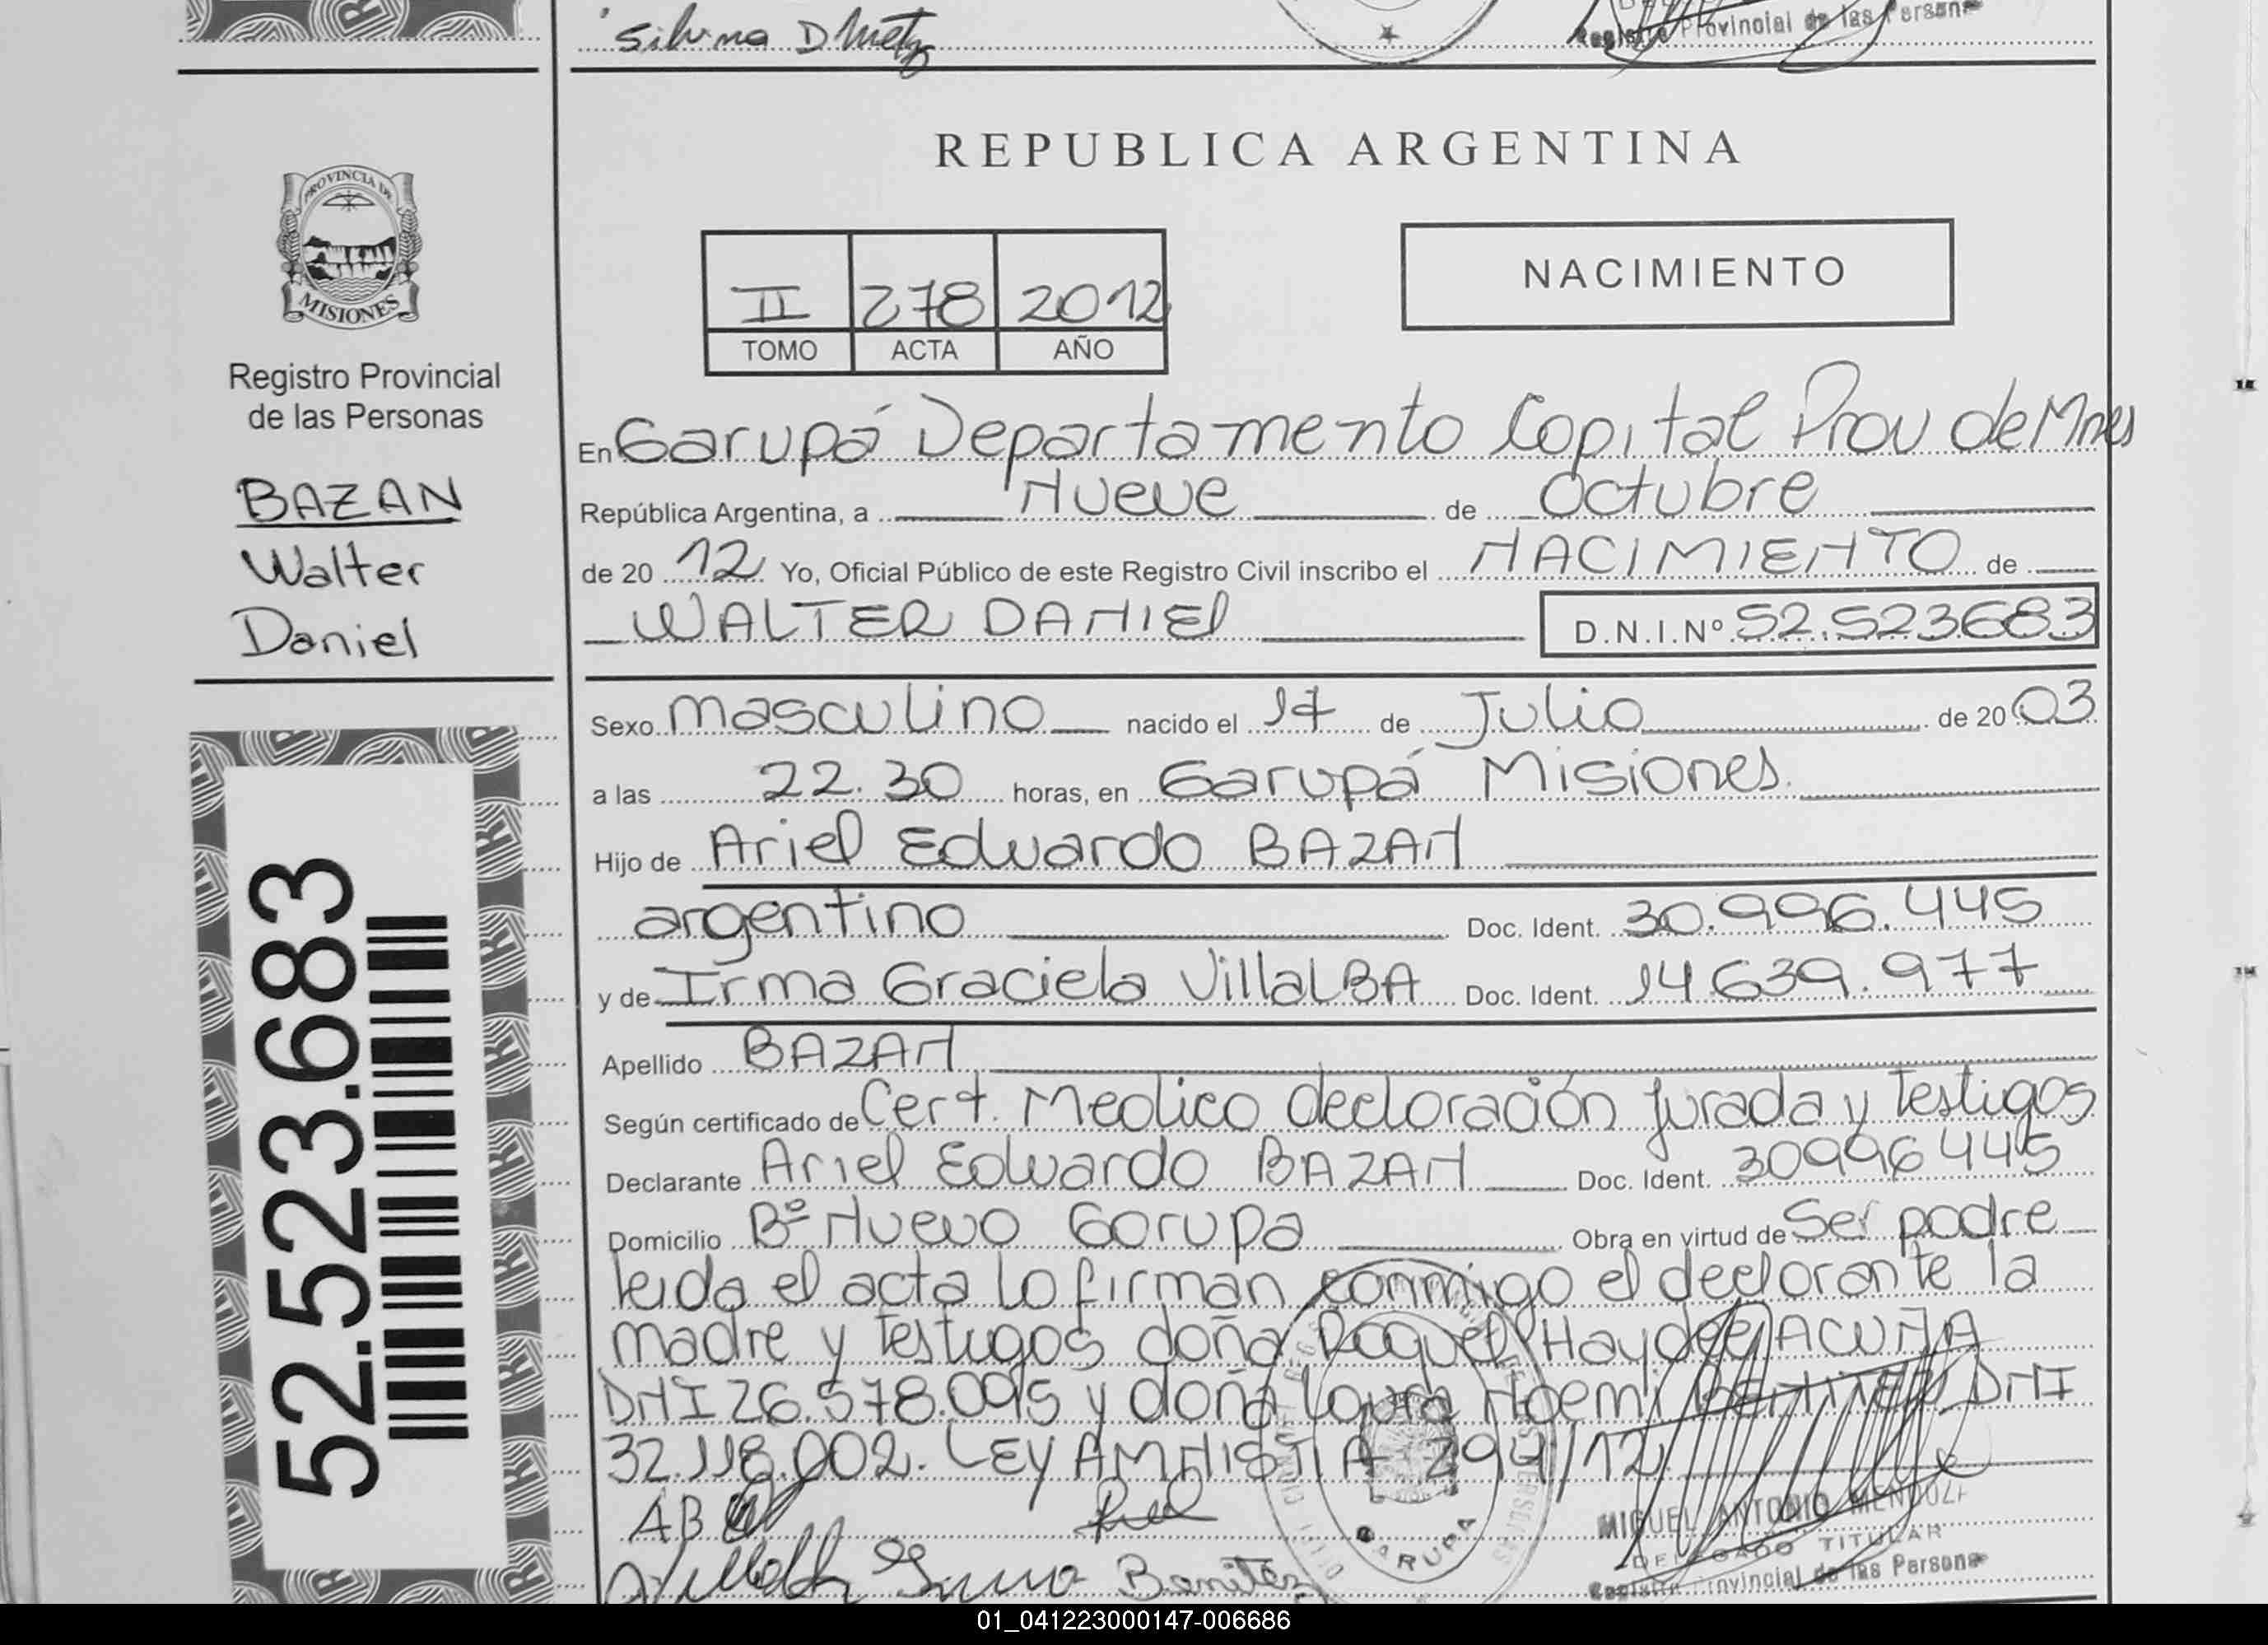 Silvina D
Registro Provincial de las Personas
REPUBLICA ARGENTINA
PROVINCIA DE
MISIONES
Registro Provincial
de las Personas
BAZAN
Walter
Daniel
52.523.683
II 278 2012
TOMO ACTA AÑO
NACIMIENTO
En Garupá Departamento Capital Prov de Mnes
República Argentina, a Nueve de Octubre
de 20 12 Yo, Oficial Público de este Registro Civil inscribo el NACIMIENTO de
WALTER DANIEl D.N.I.Nº 52.523683
Sexo masculino nacido el 17 de Julio de 20 03
a las 22.30 horas, en Garupá Misiones.
Hijo de Ariel Eduardo BAZAN
argentino Doc. Ident. 30.996.445
y de Irma Graciela VillalBA Doc. Ident. 14639.977
Apellido BAZAN
Según certificado de Cert. Medico declaración jurada y Testigos
Declarante Ariel Eduardo BAZAN Doc. Ident. 30996445
Domicilio Bº Nuevo Garupa Obra en virtud de Ser padre
leida el acta lo firman conmigo el declarante la
madre y Testigos doña Raquel Haydee ACUÑA
DNI 26.578.095 y doña Laura Noemi BENITEZ DNI
32.118.002. LEY AMNISTIA 294/12
AB
Irma Benitez
GARUPA
MIGUEL ANTONIO MENDOZA
DELEGADO TITULAR
Registro Provincial de las Personas
01_041223000147-006686